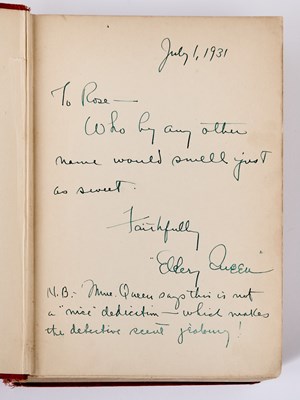 July 1, 1931
To Rose—
Who by any other
name would smell just
as sweet.
Faithfully
"Ellery Queen"
N.B.- Mme. Queen says this is not
a "nice" dedication — which makes
the detective scent jealousy!